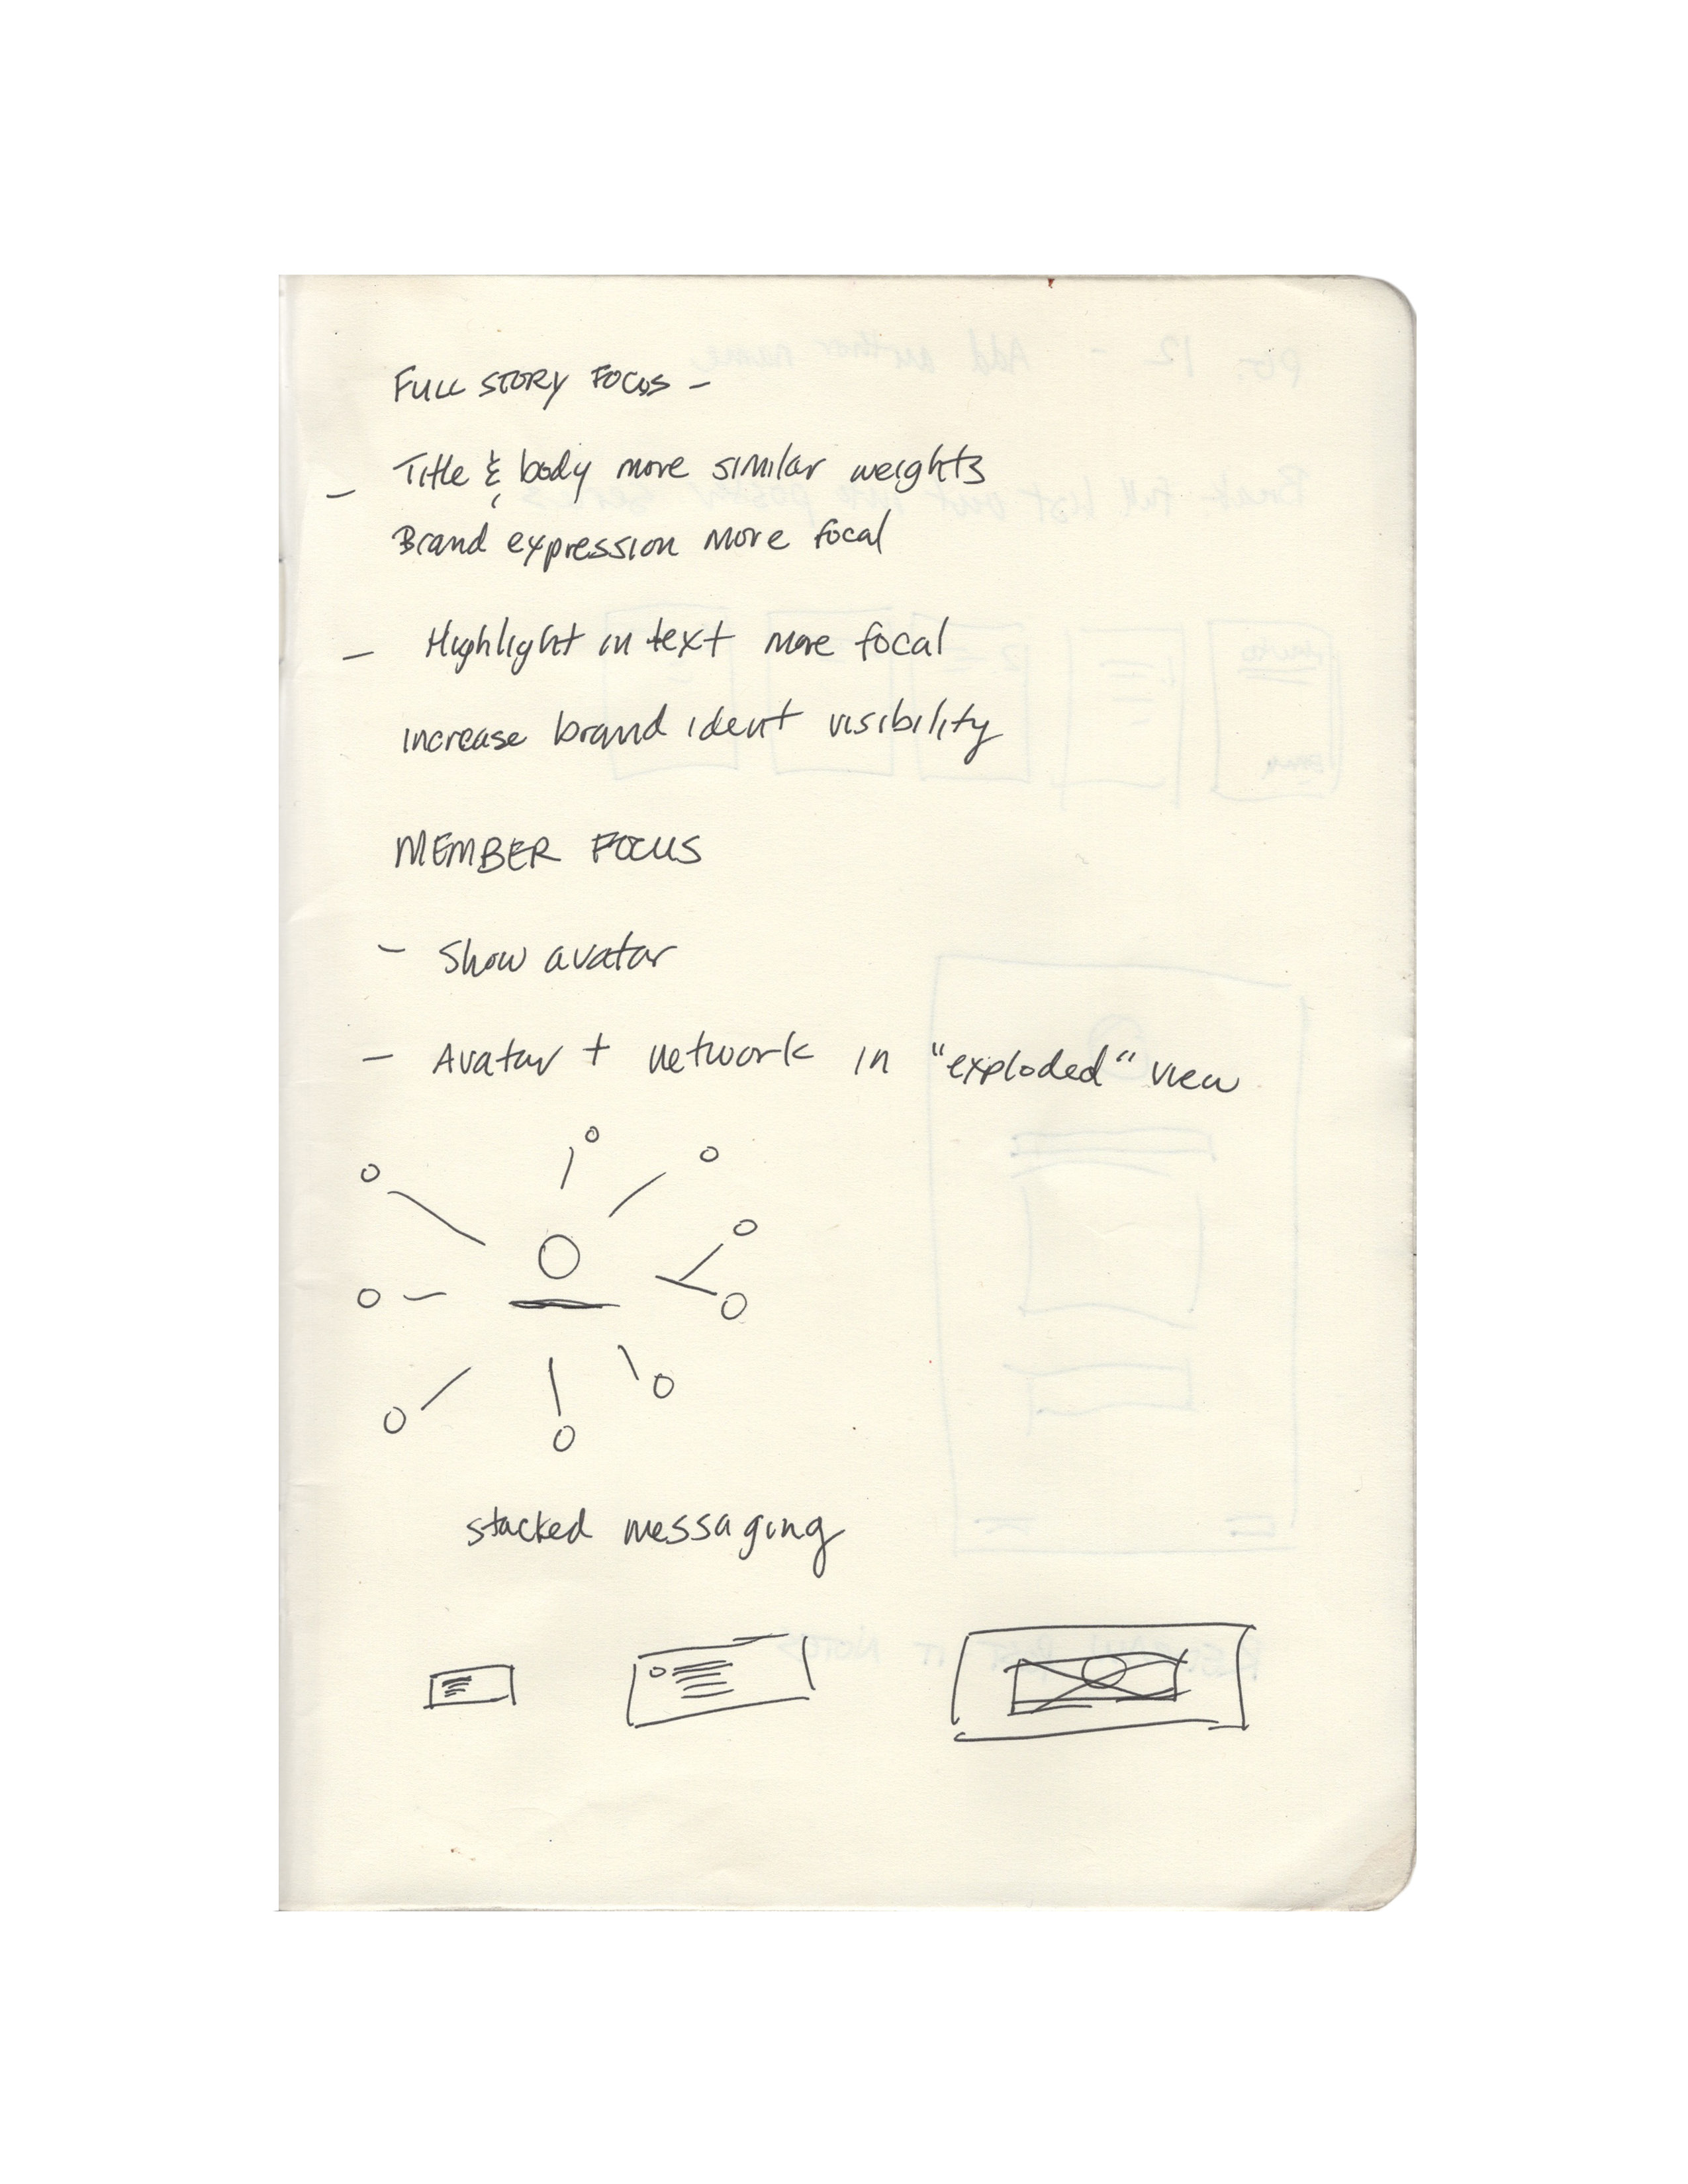 FULL STORY FOCUS -
- Title & body more similar weights
Brand expression more focal
- Highlight in text more focal
increase brand ident visibility
MEMBER FOCUS
- Show avatar
- Avatar + network in "exploded" view
stacked messaging